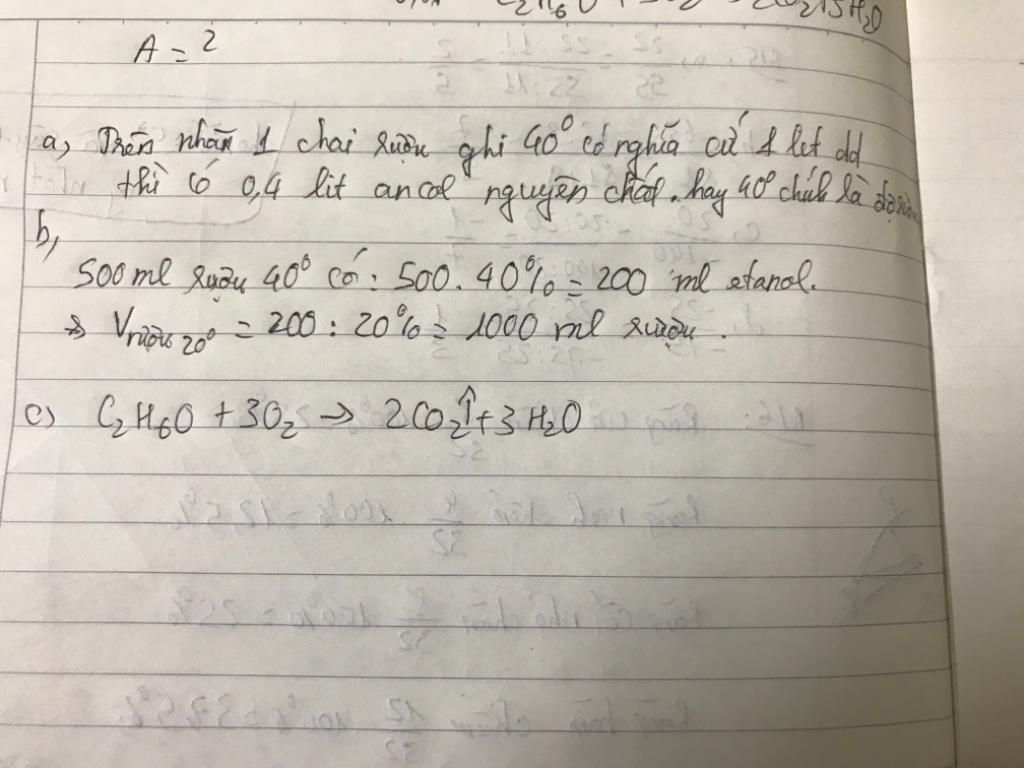 C₂H₆O
2CO₂ + 3H₂O
A = 2
a, Trên nhãn 1 chai rượu ghi 40° có nghĩa cứ 1 lit dd
thì có 0,4 lit ancol nguyên chất. hay 40° chính là độ rượu
b,
500 ml rượu 40° có : 500. 40% = 200 ml etanol.
=> Vrượu 20° = 200 : 20% = 1000 ml rượu.
c) C₂H₆O + 3O₂ → 2CO₂↑ + 3H₂O